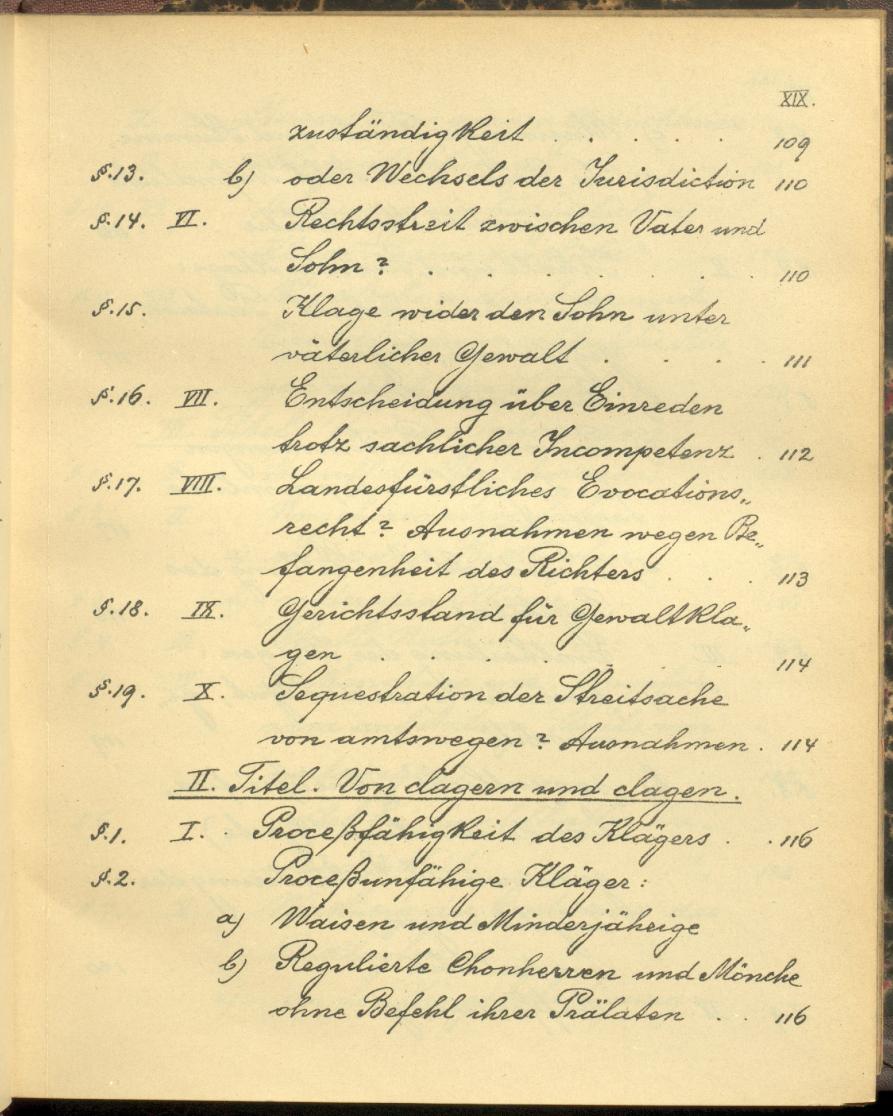 XIX.
zuständigkeit . . . . . 109
§.13. b) oder Wechsels der Jurisdiction 110
§.14. VI. Rechtsstreit zwischen Vater und
Sohn? . . . . . . . 110
§.15. Klage wider den Sohn unter
väterlicher Gewalt . . . . 111
§.16. VII. Entscheidung über Einreden
trotz sachlicher Incompetenz . 112
§.17. VIII. Landesfürstliches Evocations„
recht? Ausnahmen wegen Be„
fangenheit des Richters . . . 113
§.18. IX. Gerichtsstand für Gewaltkla„
gen . . . . . . 114
§.19. X. Sequestration der Streitsache
von amtswegen? Ausnahmen . 114
II. Titel. Von clagern und clagen.
§.1. I. . Proceßfähigkeit des Klägers . . 116
§.2. Proceßunfähige Kläger:
a) Waisen und Minderjährige
b) Regulierte Chonherren und Mönche
ohne Befehl ihrer Prälaten . . 116